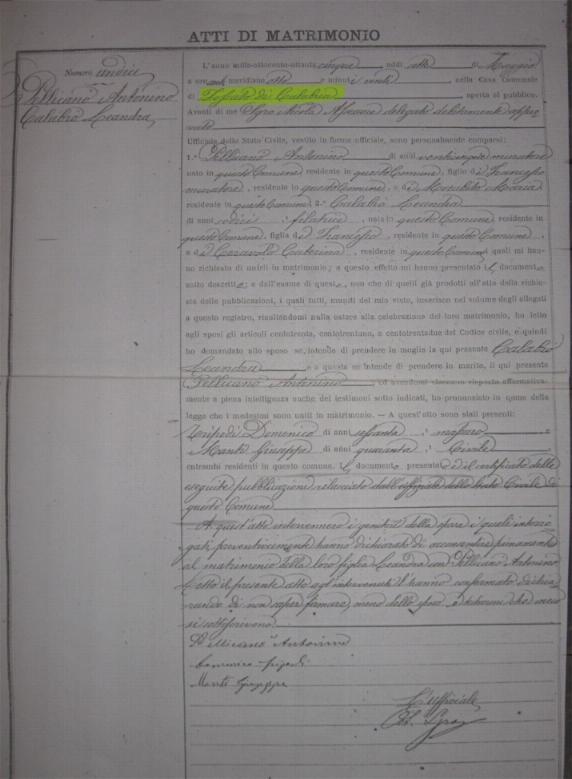 ATTI DI MATRIMONIO
Numero undici
Pellicano Antonino
Calabrò Leandra
L'anno mille-ottocento-ottanta cinque addì otto di Maggio
a ore anti meridiane otto e minuti venti nella Casa Comunale
di di Calabria aperta al pubblico.
Avanti di me Nicola Assessore delegato debitamente
Uffiziale dello Stato Civile, vestito in forma officiale, sono personalmente comparsi:
1.° Pellicano Antonino di anni muratore
nato in questo Comune residente in questo Comune, figlio di Francesco
muratore, residente in questo Comune e di Maria
residente in questo Comune; 2.° Calabrò Leandra
di anni sedici, filatrice, nata in questo Comune residente in
questo Comune, figlia di Francesco, residente in questo Comune
e di Caterina, residente in questo Comune i quali mi han-
no richiesto di unirli in matrimonio; a questo effetto mi hanno presentato il documento
sotto descritto; e dall'esame di questo, non che di quelli già prodotti all'atto della richie-
sta delle pubblicazioni, i quali tutti, muniti del mio visto, inserisco nel volume degli allegati
a questo registro, risultandomi nulla ostare alla celebrazione del loro matrimonio, ho letto
agli sposi gli articoli centotrenta, centotrentuno, e centotrentadue del Codice civile, e quindi
ho domandato allo sposo se intende di prendere in moglie la qui presente Calabrò
Leandra e a questa se intende di prendere in marito, il qui presente
Pellicano Antonino ed avendomi ciascuno risposto affermativa-
mente a piena intelligenza anche dei testimoni sotto indicati, ho pronunziato in nome della
legge che i medesimi sono uniti in matrimonio. — A quest'atto sono stati presenti:
Tripodi Domenico di anni sessanta, massaro e
Manti Giuseppe di anni quaranta, Civile
entrambi residenti in questo comune. Il documento presentato è il certificato delle
eseguite pubblicazioni rilasciato dall'uffiziale dello Stato Civile di
questo Comune
A quest'atto intervennero i genitori della sposa i quali interro-
gati preventivamente hanno dichiarato di acconsentire pienamente
al matrimonio della loro figlia Leandra con Pellicano Antonino
Letto il presente atto agl'intervenuti il hanno confermato dichia-
rando di non saper firmare, meno dello sposo e testimoni che meco
si sottoscrivono
Pellicano Antonino
Domenico Tripodi
Manti Giuseppe
L'Uffiziale